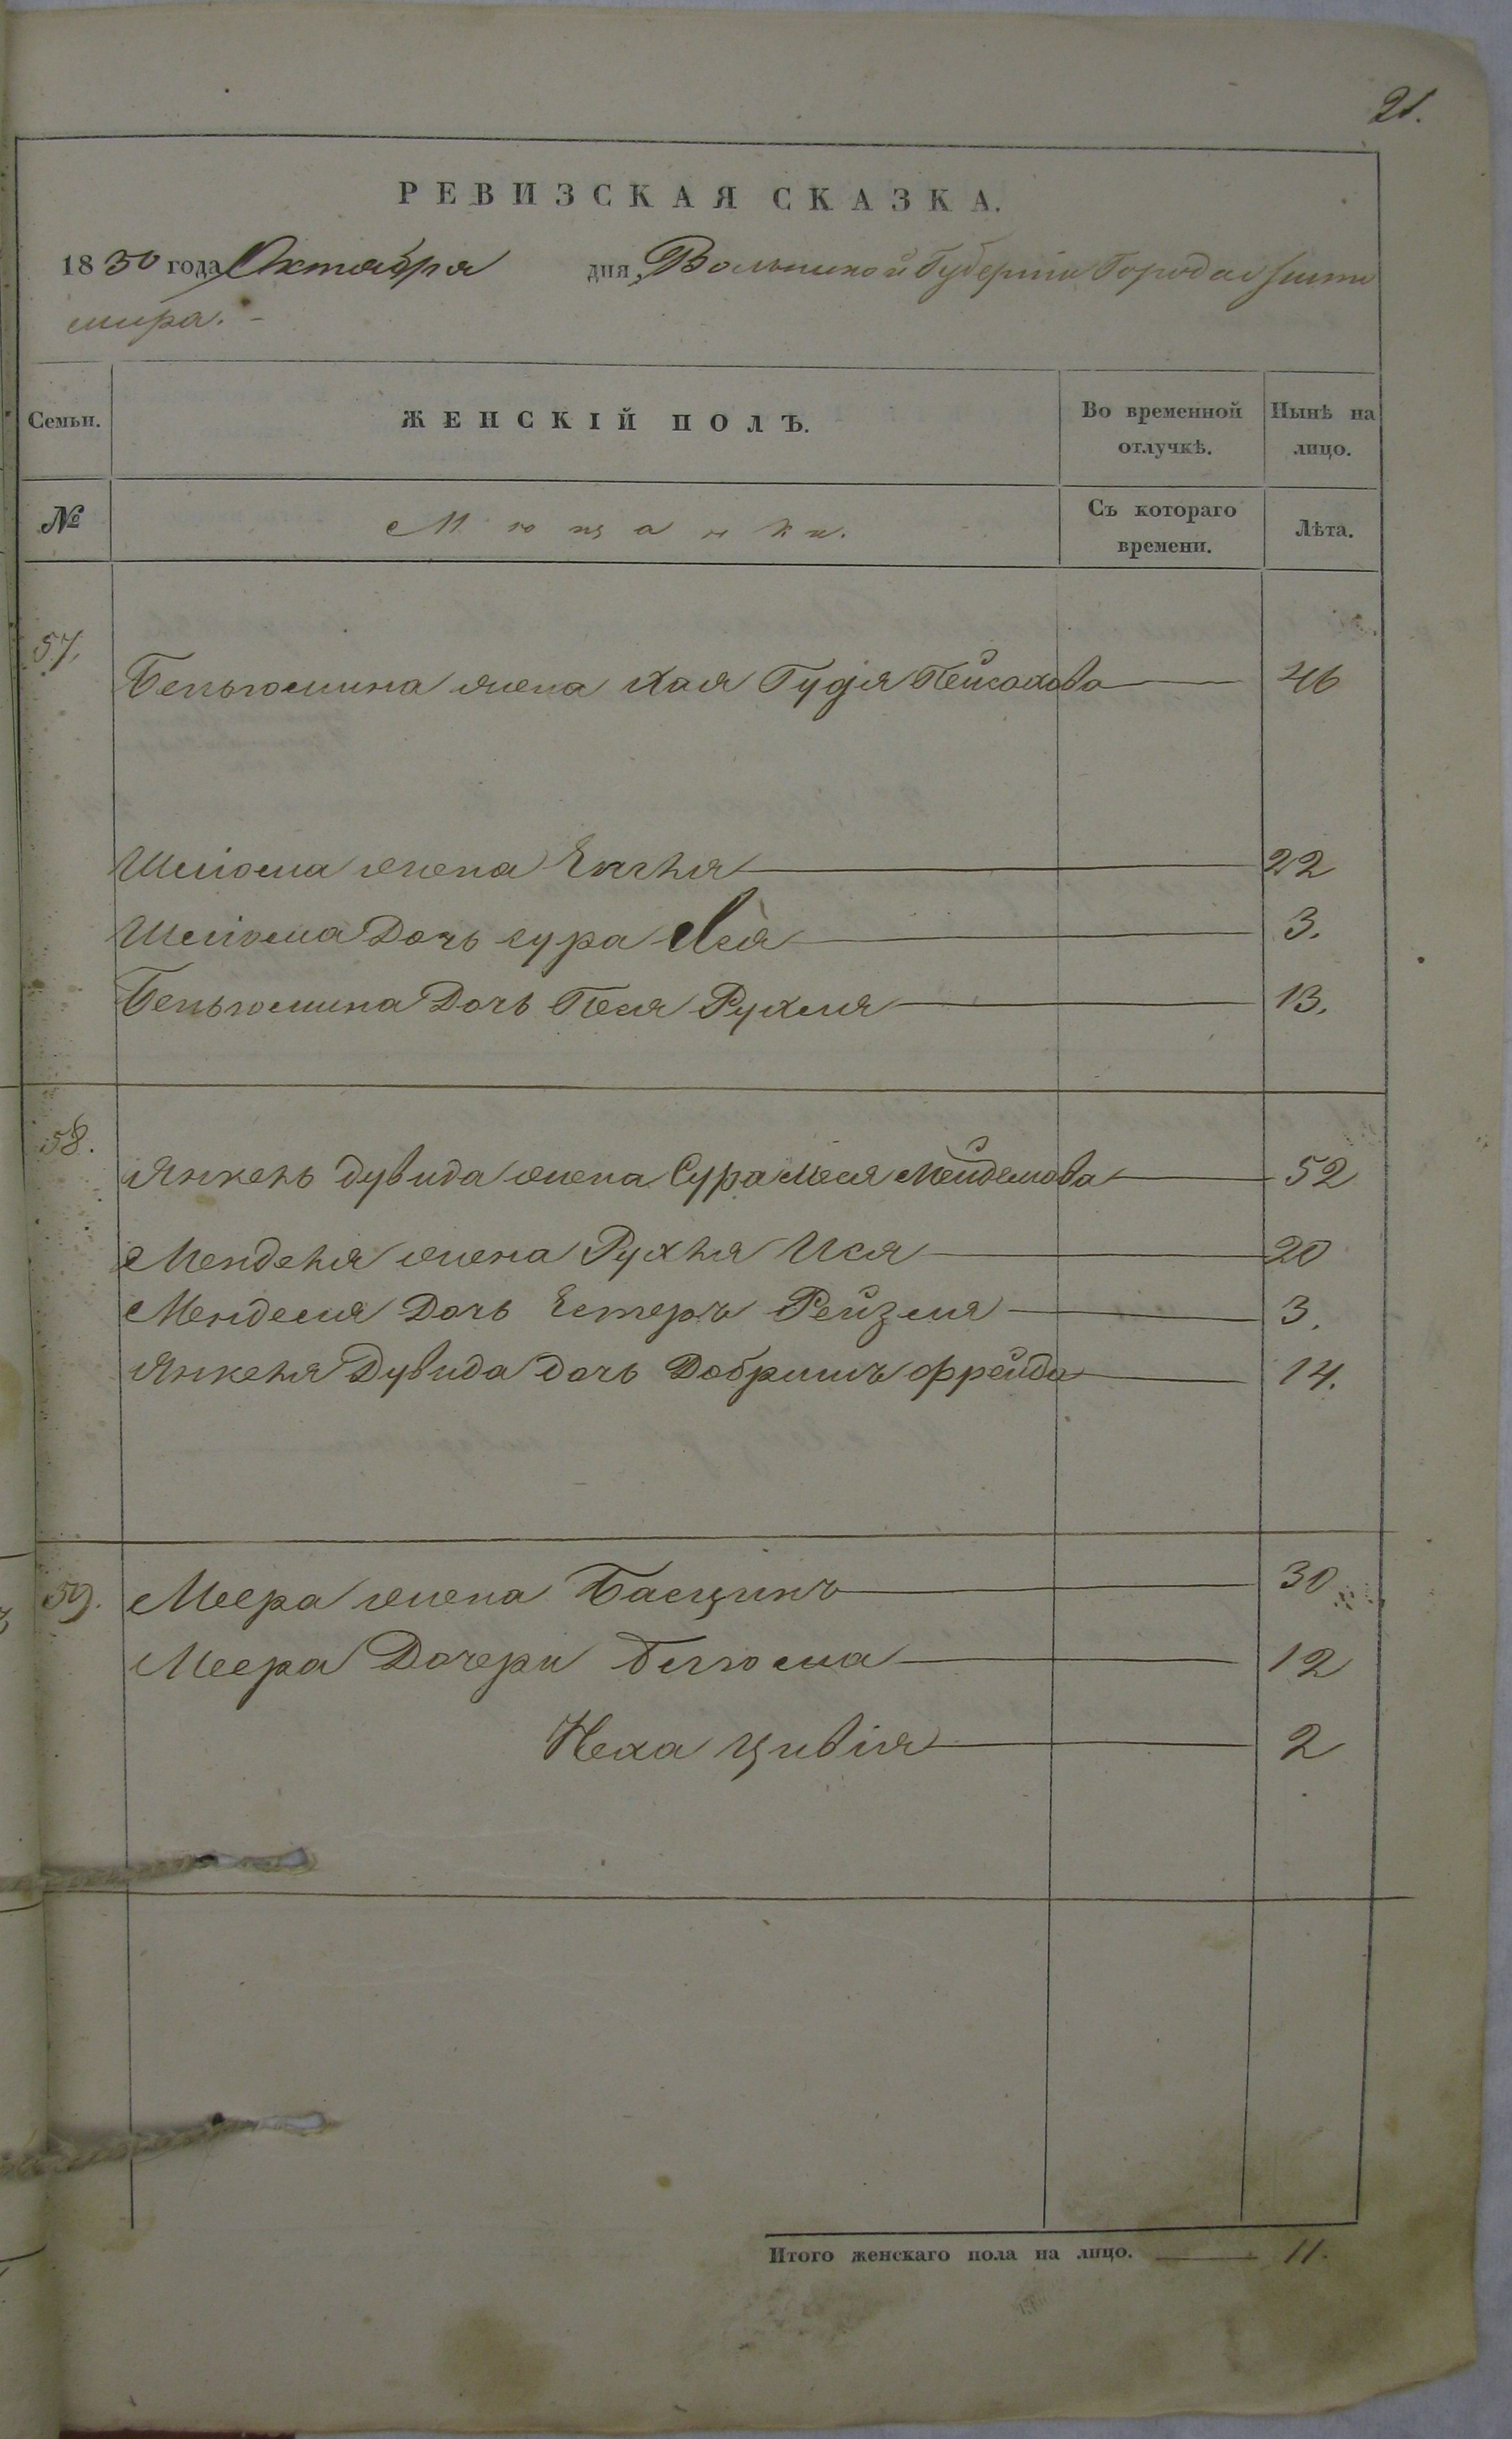 21.
РЕВИЗСКАЯ СКАЗКА.
1850 года Октября дня, Волынской Губерніи Города Жито
мира. -
Семьи. ЖЕНСКІЙ ПОЛЪ. Во временной отлучкѣ. Нынѣ на лицо.
№ Мѣщанки. Съ котораго времени. Лѣта.
57. Беньюмина жена Хая Гудя Пейсахова 46
Шліома жена 22
Шліома Дочь Сура Лея 3.
Беньюмина Дочь Песя Рухля 13.
58. Янкель Дувида жена Сура Меля 52
Менделя жена Рухля Ися 20
Менделя Дочь Естеръ Рейзля 3.
Янкеля Дувида дочь Добришъ Фрейда 14.
59. Меера жена Басцинъ 30
Меера Дочери Блюма 12
Неха Цивія 2
Итого женскаго пола на лицо. 11.